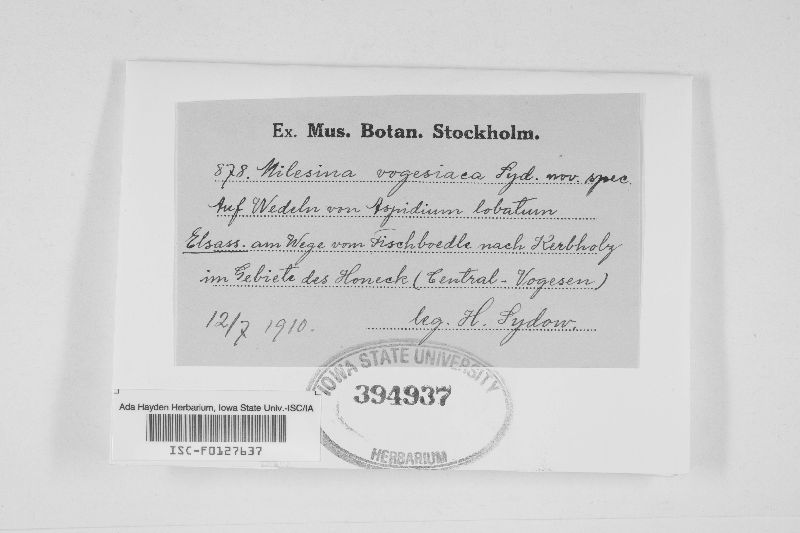 Ex. Mus. Botan. Stockholm.
878. Milesina vogesiaca Syd. nov. spec.
Auf Wedeln von Aspidium lobatum
Elsass. am Wege vom Fischboedle nach Kerbholz
im Gebiete des Honeck (Central-Vogesen)
12/7 1910. leg. H. Sydow.
IOWA STATE UNIVERSITY
394937
HERBARIUM
Ada Hayden Herbarium, Iowa State Univ.-ISC/IA
ISC-F0127637